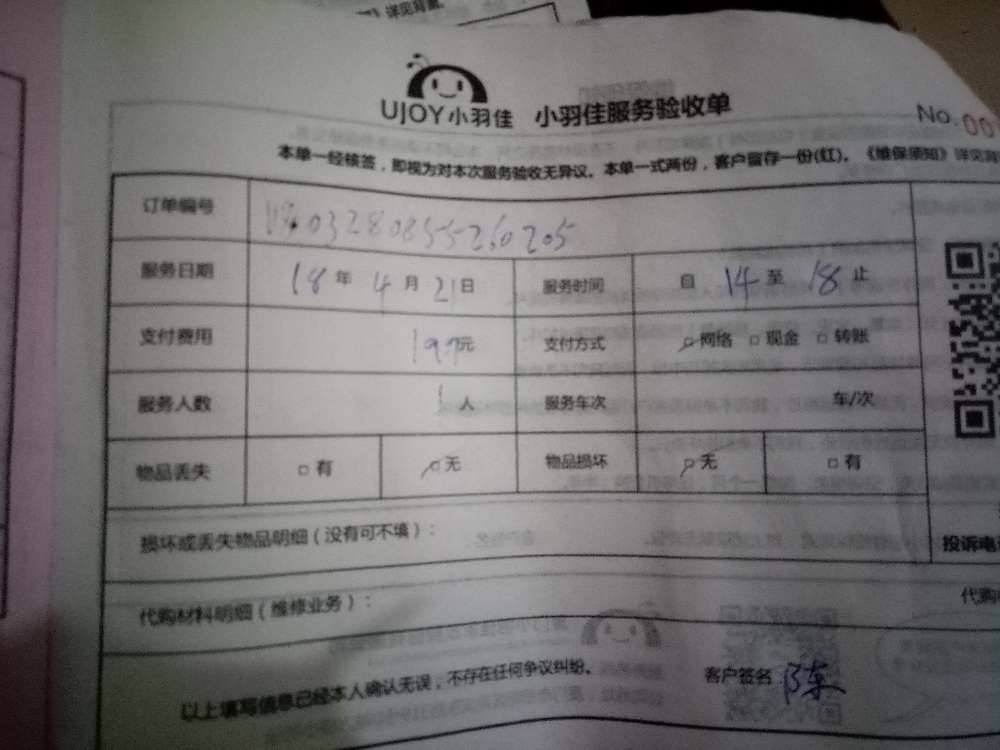 详见背面。
UJOY小羽佳 小羽佳服务验收单 No.00
本单一经核签，即视为对本次服务验收无异议。本单一式两份，客户留存一份(红)。《维保须知》详见背
订单编号 03280855260205
服务日期 18年4月21日 服务时间 自14至18止
支付费用 197元 支付方式 □网络 □现金 □转账
服务人数 1人 服务车次 车/次
物品丢失 □有 □无 物品损坏 □无 □有
损坏或丢失物品明细（没有可不填）：
投诉电
代购材料明细（维修业务）：
代购
以上填写信息已经本人确认无误，不存在任何争议纠纷。 客户签名：陈